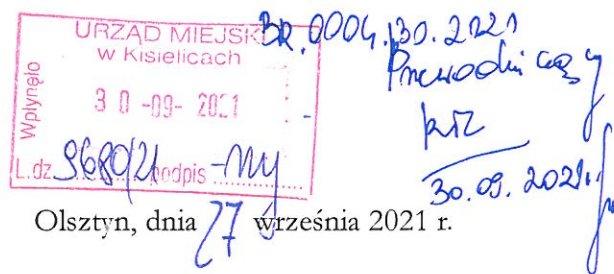 URZĄD MIEJSKI
w Kisielicach
Wpłynęło
30 -09- 2021
L.dz. 9680/21 podpis
BR.0004.130.2021
Przewodniczący
30.09.2021r.
Olsztyn, dnia 27 września 2021 r.